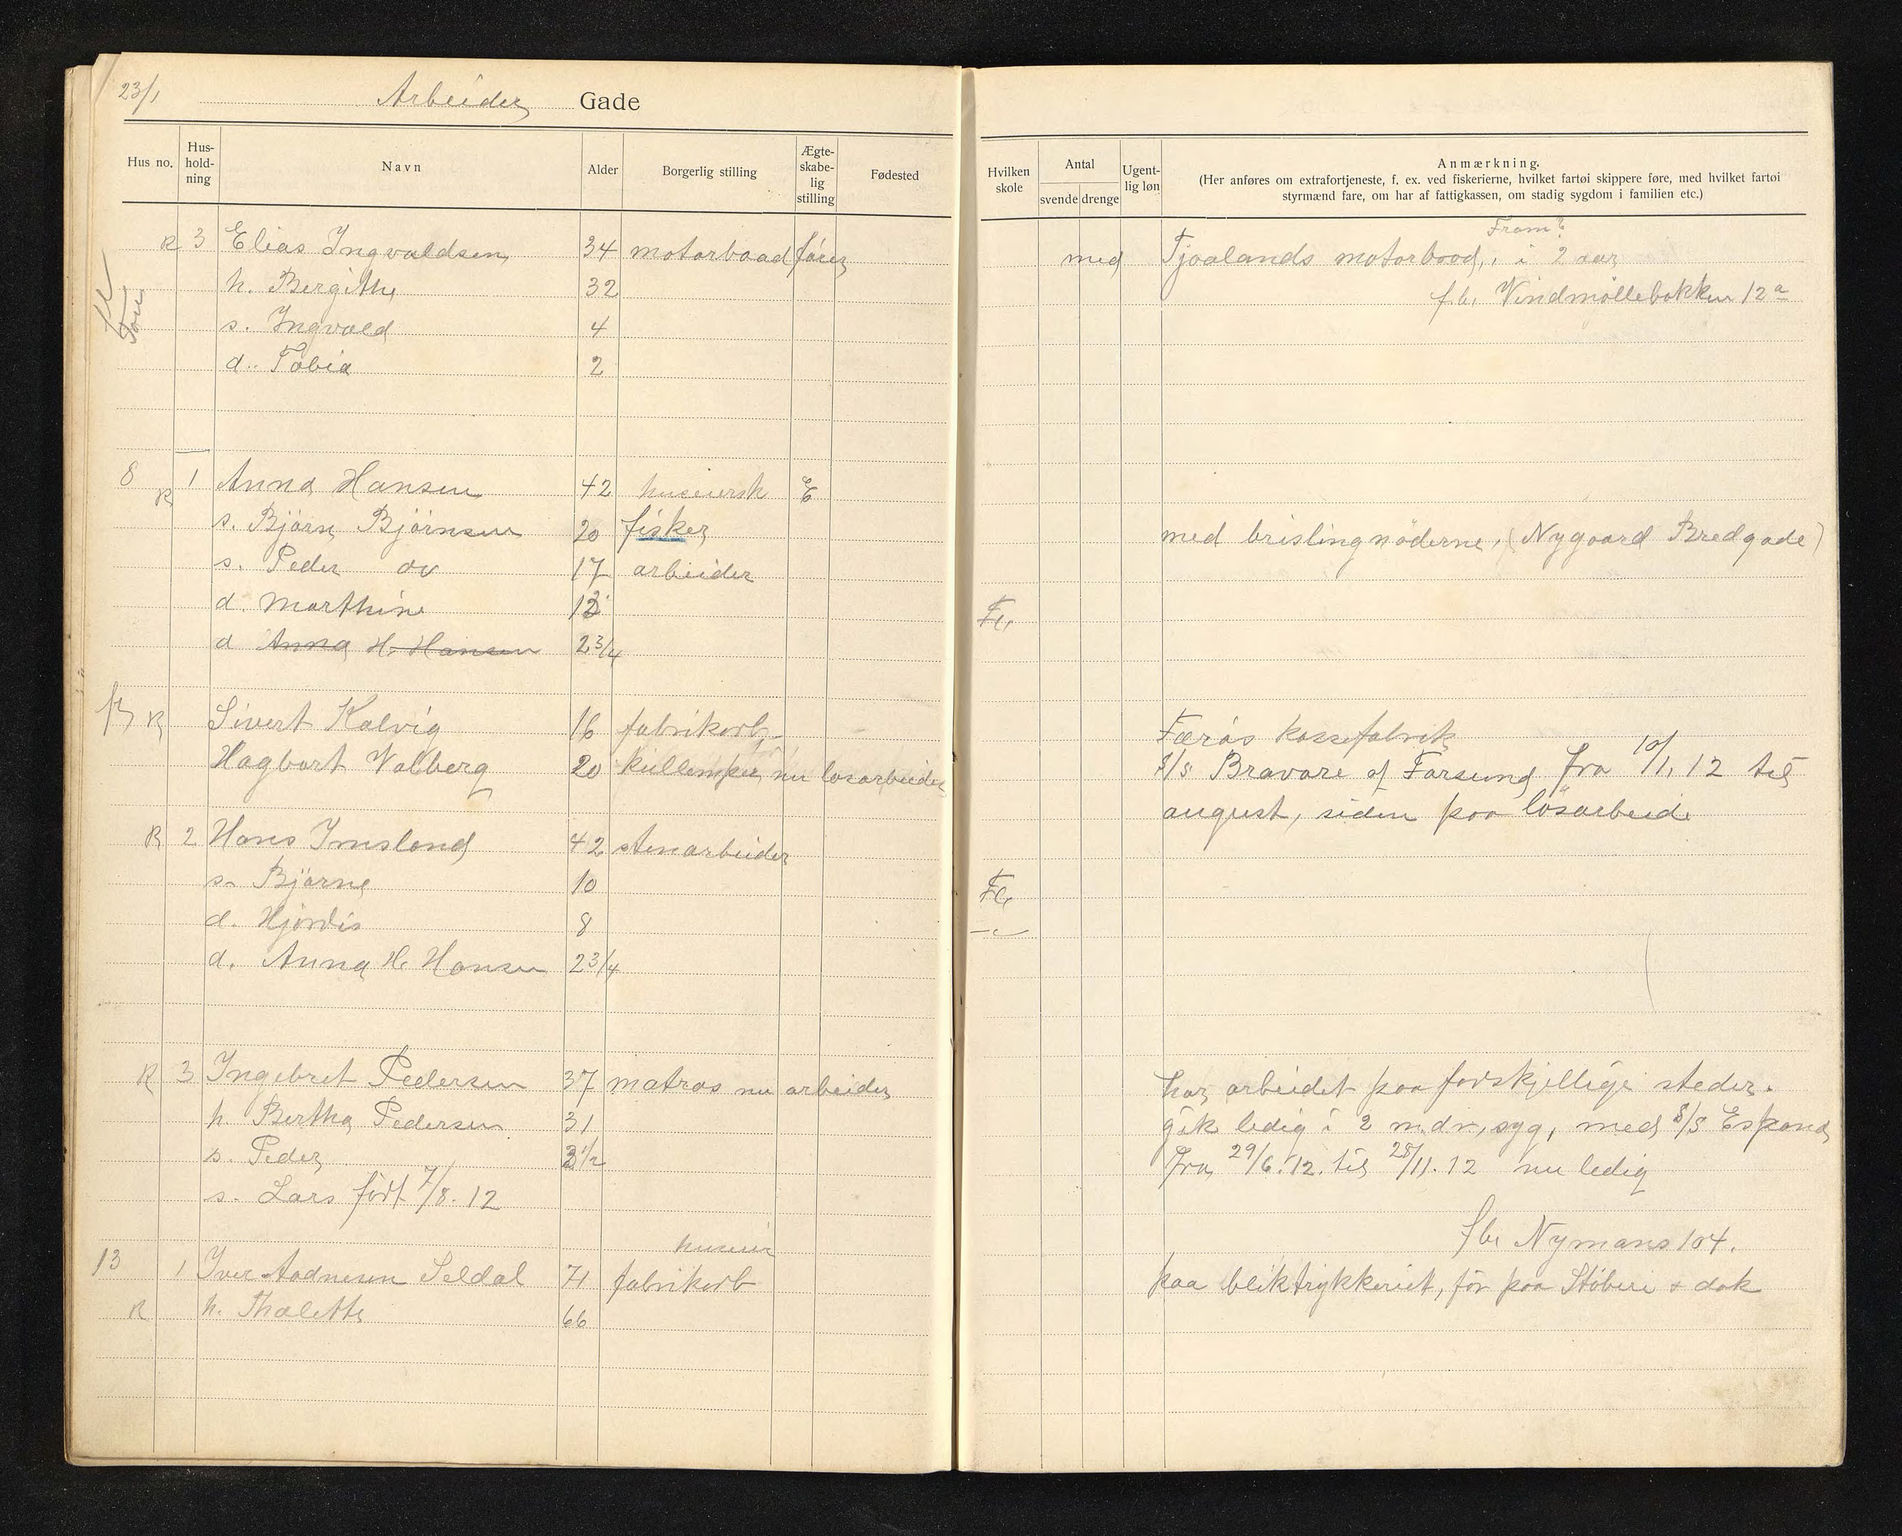 23/1
Arbeider Gade
Hus no. Hus-hold-ning Navn Alder Borgerlig stilling Ægte-skabe-lig stilling Fødested
Hvilken skole Antal svende drenge Ugent-lig løn Anmærkning.
(Her anføres om extrafortjeneste, f. ex. ved fiskerierne, hvilket fartøi skippere føre, med hvilket fartøi
styrmænd fare, om har af fattigkassen, om stadig sygdom i familien etc.)
Fram?
R 3 Elias Ingvaldsen 34 motorbaadfører med Tjoalands motorbaad, i 2 aar
h. Bergithe 32 f.b. Vindmøllebakken 12a
s. Ingvald 4
d. Tobia 2
8 R 1 Anna Hansen 42 huseiersk E
s. Bjørn Bjørnsen 20 fisker med brislingnøderne, (Nygaard Bredgade)
s. Peder do 17 arbeider
d. Marthine 13 Fl.
d Anna H. Hansen 2 3/4
R Sivert Kalvig 16 fabrikarb. Færøs kassefabrik
Hagbart Valberg 20 kullemper, nu løsarbeider s/s Bravore af Farsund fra 10/1. 12 til
august, siden paa løsarbeid.
R 2 Hans Imsland 42 stenarbeider
s. Bjarne 10 Fl.
d. Hjørdis 8 -"-
d. Anna H. Hansen 2 3/4
R 3 Ingebret Pedersen 37 matros nu arbeider har arbeidet paa forskjellige steder.
h. Bertha Pedersen 31 gik ledig i 2 mdr, syg, med s/s Espana
s. Peder 3 1/2 fra 29/6. 12. til 28/11. 12 nu ledig
s. Lars født 7/8. 12
fbr Nymans 104.
huseier
13 1 Iver Aadnesen Seldal 71 fabrikarb paa bliktrykkeriet, før paa Støberi & dok
R h. Thalette 66